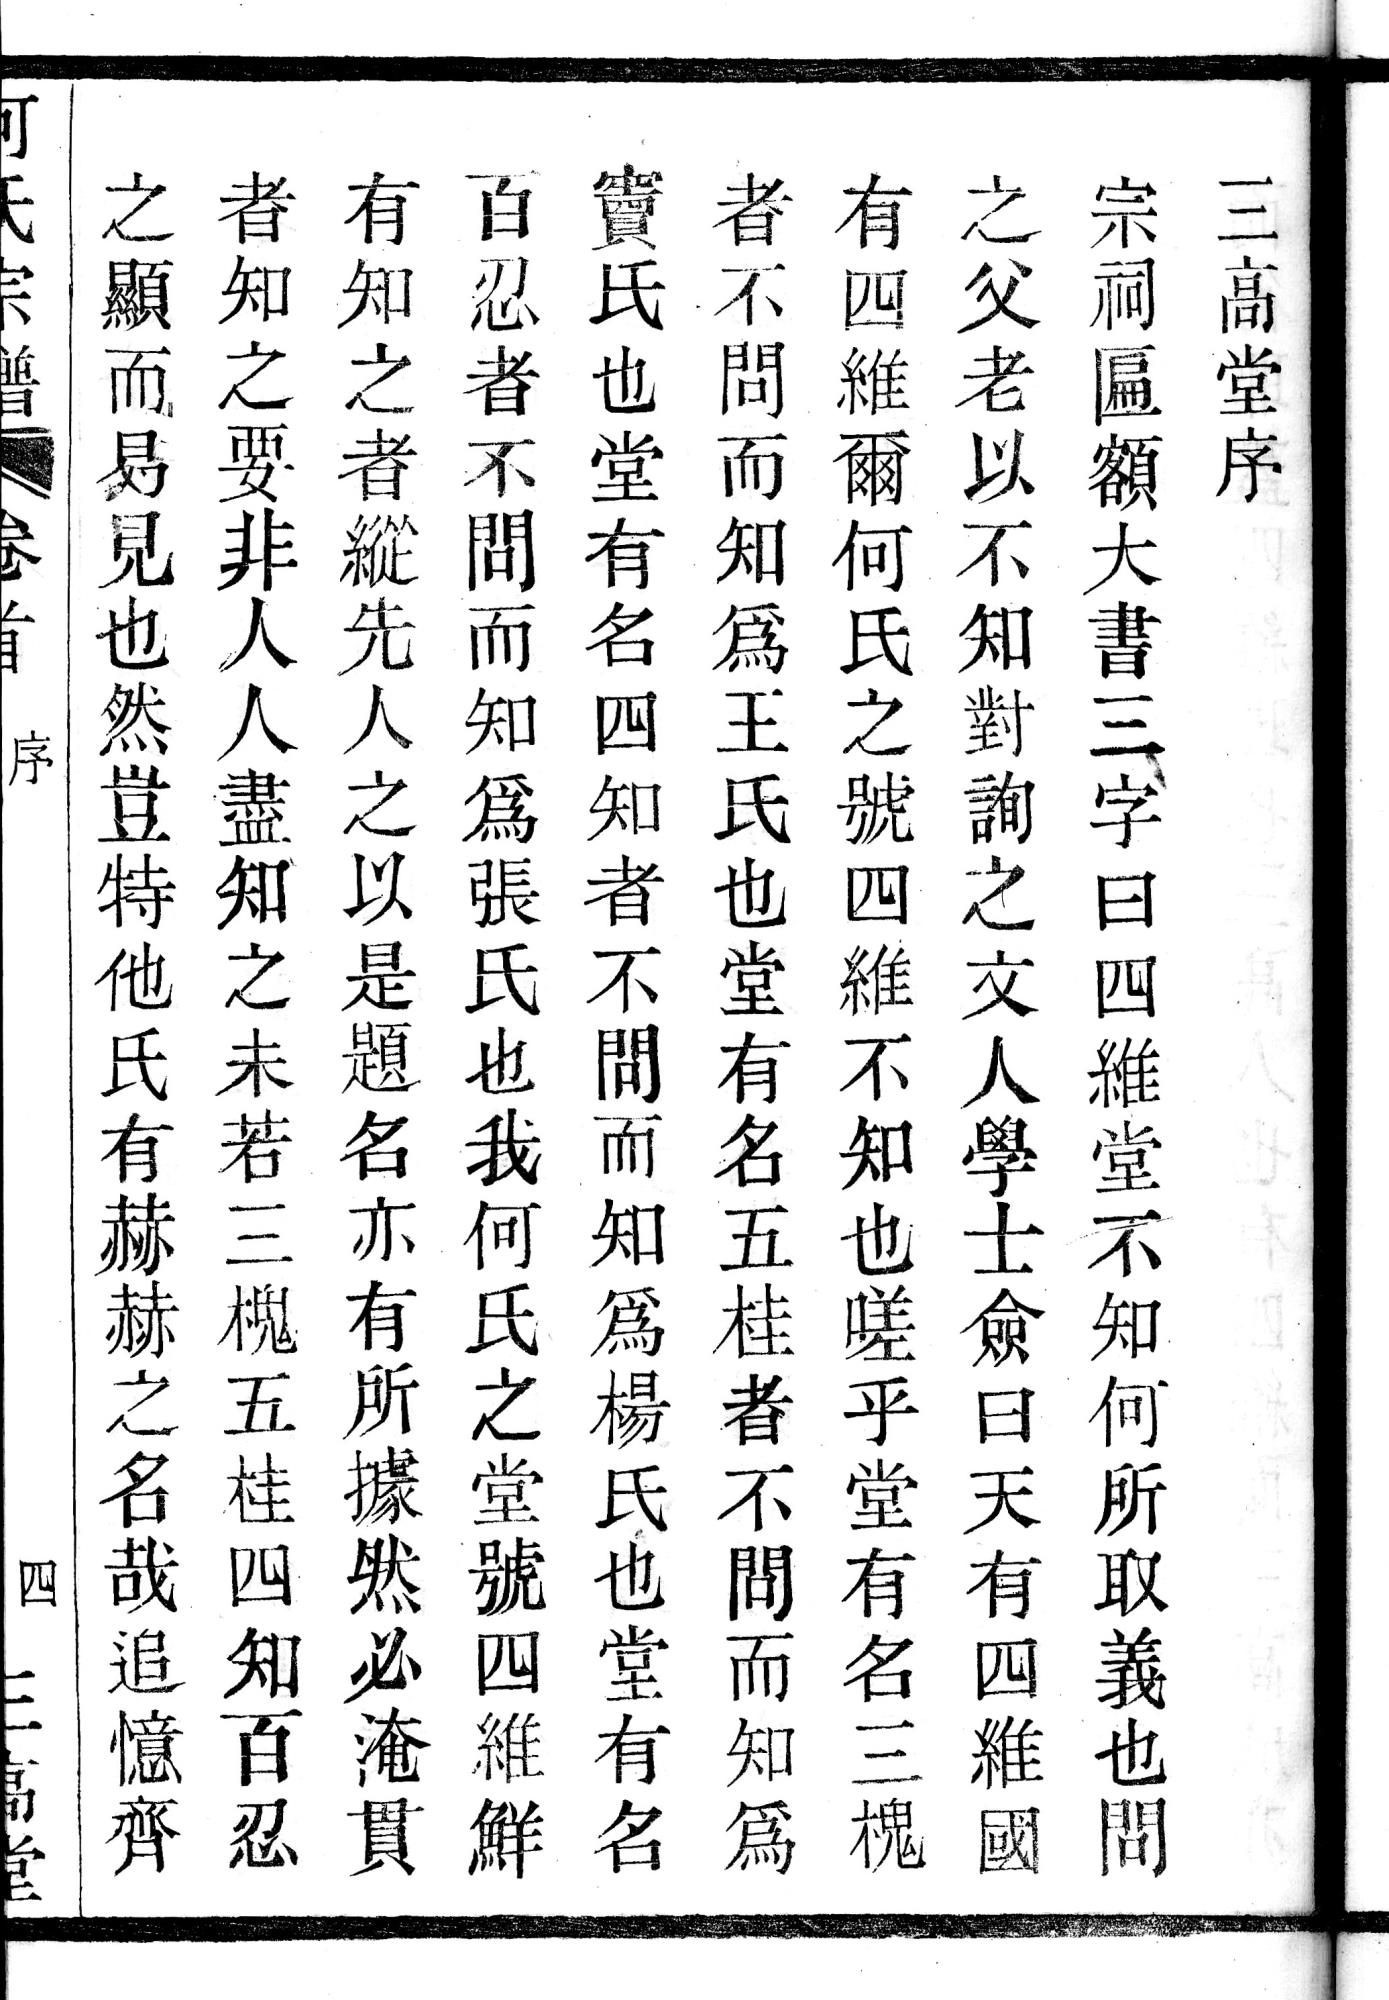 三高堂序
宗祠匾額大書三字曰四維堂不知何所取義也問
之父老以不知對詢之文人學士僉曰天有四維國
有四維爾何氏之號四維不知也嗟乎堂有名三槐
者不問而知爲王氏也堂有名五桂者不問而知爲
竇氏也堂有名四知者不問而知爲楊氏也堂有名
百忍者不問而知爲張氏也我何氏之堂號四維鮮
有知之者縱先人之以是題名亦有所據然必淹貫
者知之要非人人盡知之未若三槐五桂四知百忍
之顯而易見也然豈特他氏有赫赫之名哉追憶齊
何氏宗譜 卷首 序 四 三高堂